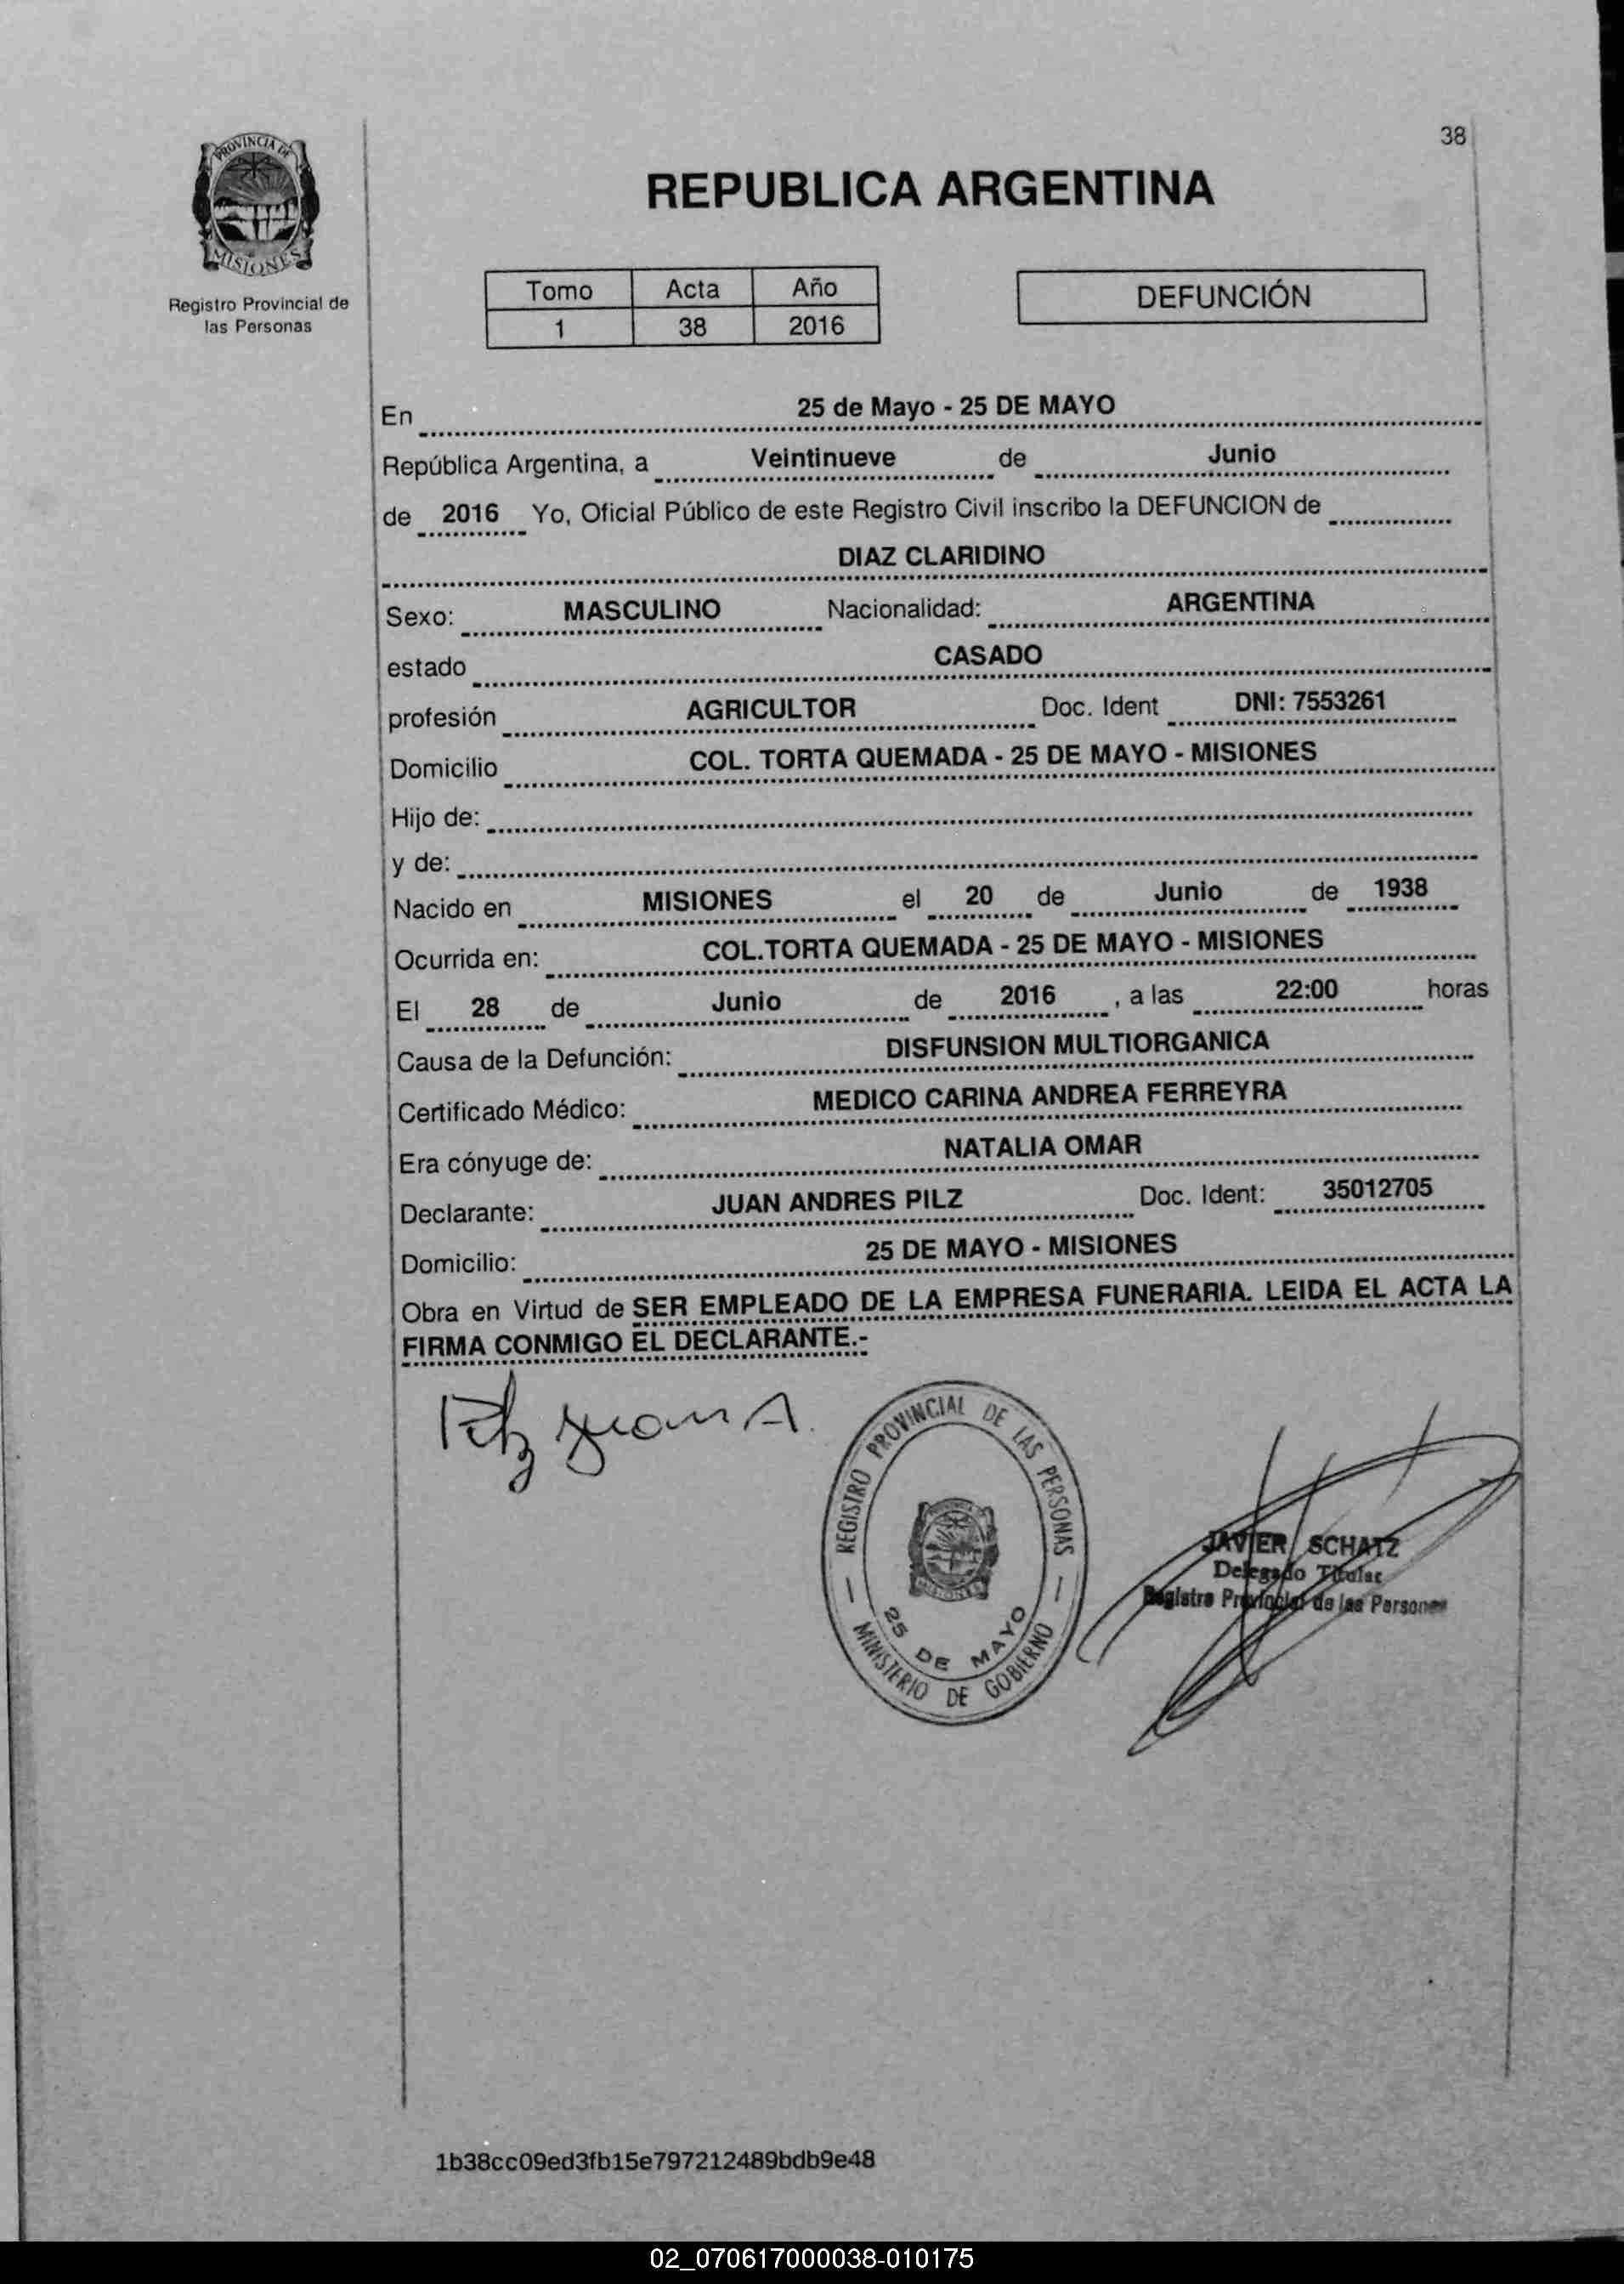 38
PROVINCIA DE
MISIONES
Registro Provincial de
las Personas
REPUBLICA ARGENTINA
Tomo Acta Año
1 38 2016
DEFUNCIÓN
En 25 de Mayo - 25 DE MAYO
República Argentina, a Veintinueve de Junio
de 2016 Yo, Oficial Público de este Registro Civil inscribo la DEFUNCION de
DIAZ CLARIDINO
Sexo: MASCULINO Nacionalidad: ARGENTINA
estado CASADO
profesión AGRICULTOR Doc. Ident DNI: 7553261
Domicilio COL. TORTA QUEMADA - 25 DE MAYO - MISIONES
Hijo de:
y de:
Nacido en MISIONES el 20 de Junio de 1938
Ocurrida en: COL.TORTA QUEMADA - 25 DE MAYO - MISIONES
El 28 de Junio de 2016 , a las 22:00 horas
Causa de la Defunción: DISFUNSION MULTIORGANICA
Certificado Médico: MEDICO CARINA ANDREA FERREYRA
Era cónyuge de: NATALIA OMAR
Declarante: JUAN ANDRES PILZ Doc. Ident: 35012705
Domicilio: 25 DE MAYO - MISIONES
Obra en Virtud de SER EMPLEADO DE LA EMPRESA FUNERARIA. LEIDA EL ACTA LA
FIRMA CONMIGO EL DECLARANTE.-
Pilz Juan A.
REGISTRO PROVINCIAL DE LAS PERSONAS
25 DE MAYO
MINISTERIO DE GOBIERNO
JAVIER SCHATZ
Delegado Titular
Registro Provincial de las Personas
1b38cc09ed3fb15e797212489bdb9e48
02_070617000038-010175